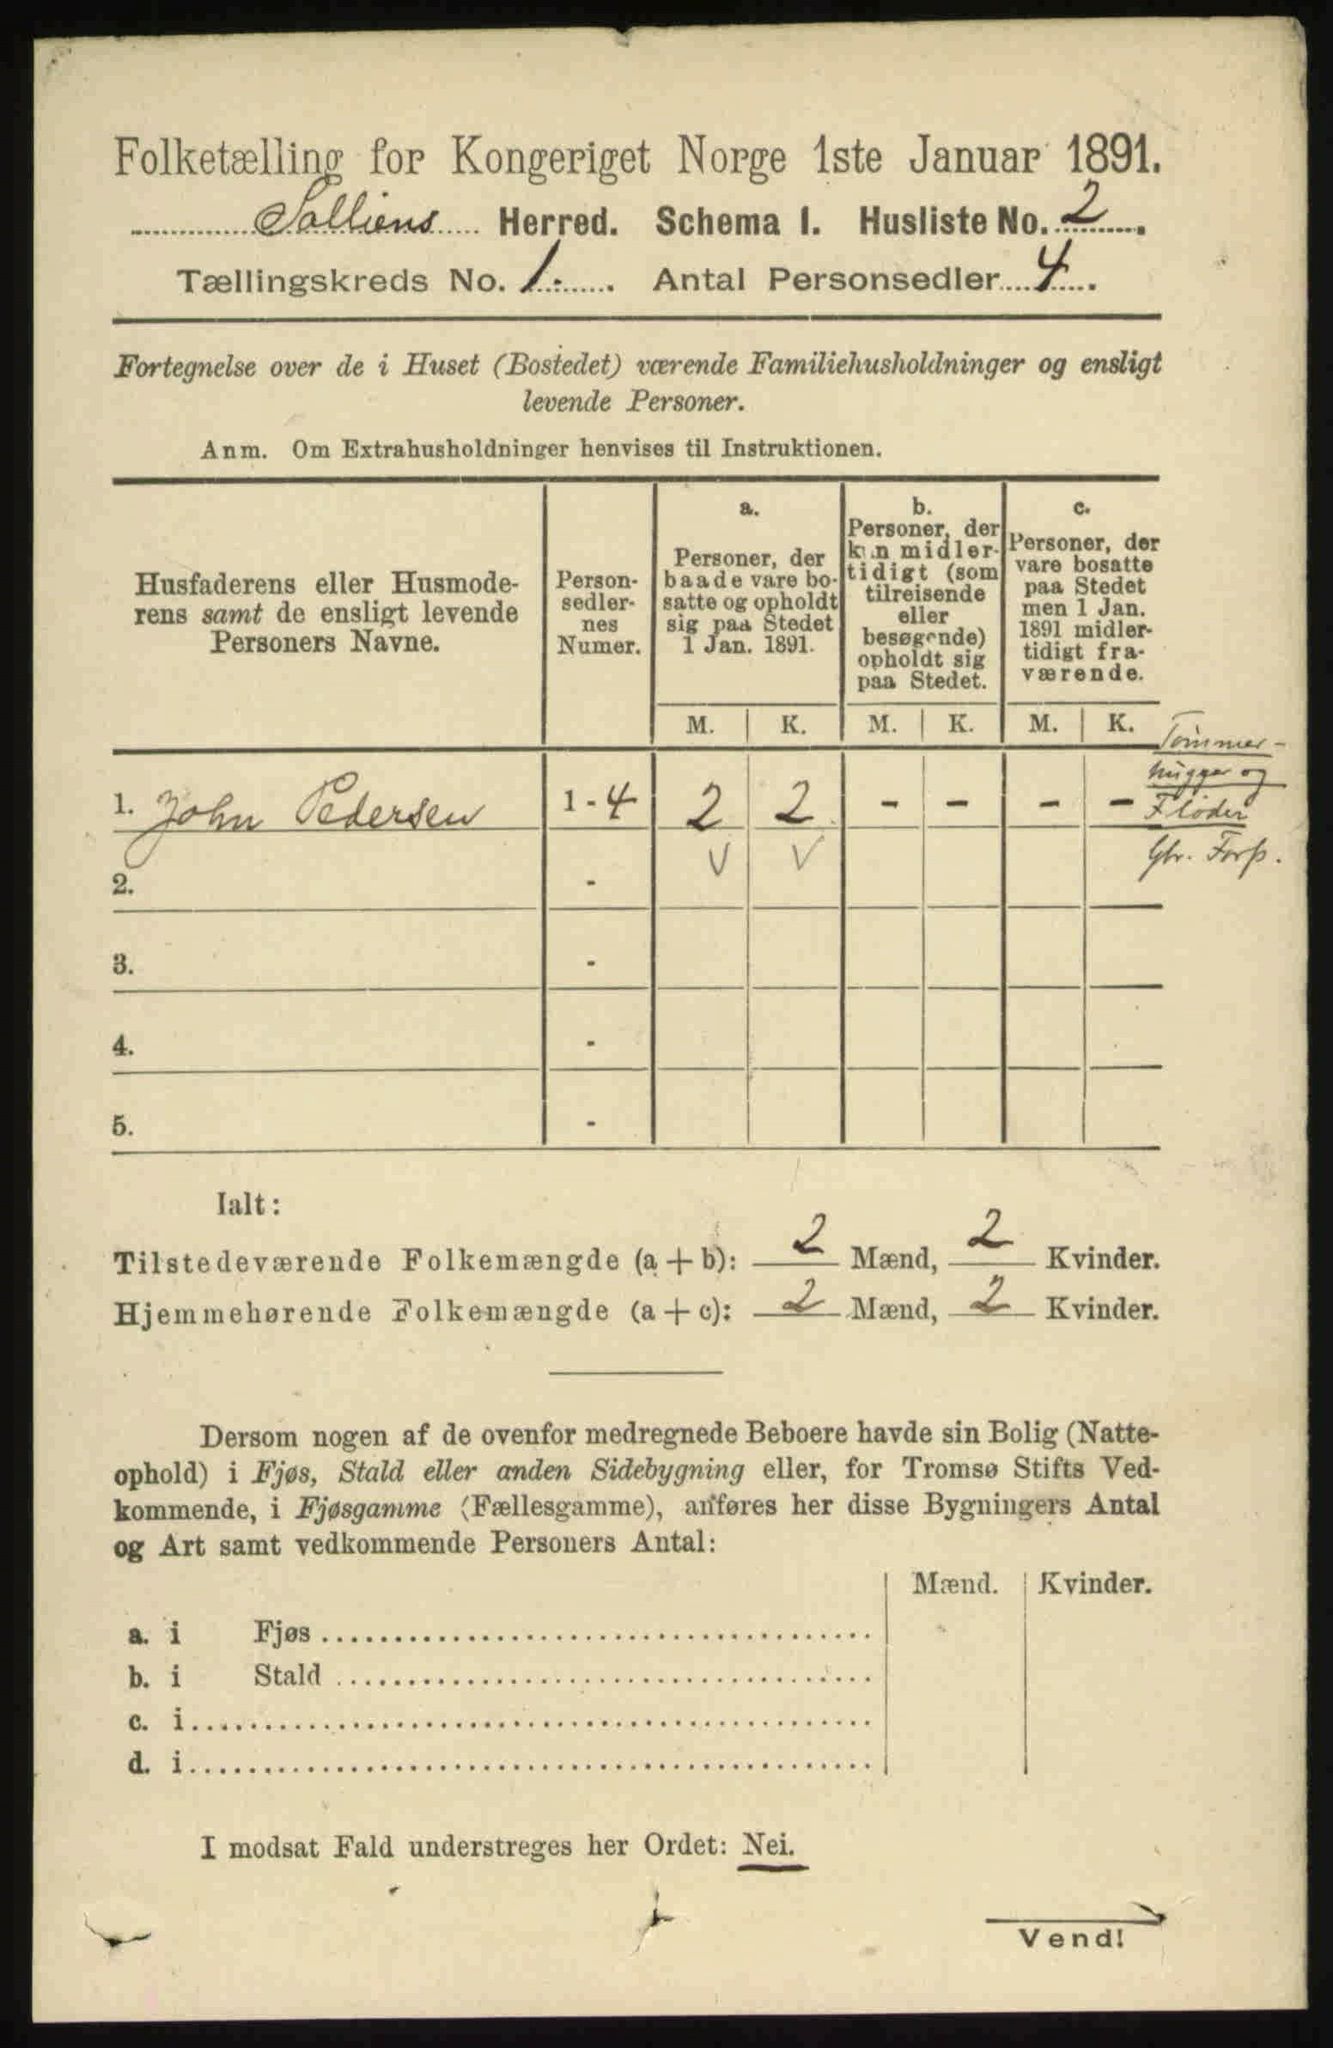 Folketælling for Kongeriget Norge 1ste Januar 1891.
Solliens Herred. Schema I. Husliste No. 2.
Tællingskreds No. 1. Antal Personsedler 4.
Fortegnelse over de i Huset (Bostedet) værende Familiehusholdninger og ensligt
levende Personer.
Anm. Om Extrahusholdninger henvises til Instruktionen.
Husfaderens eller Husmode-
rens samt de ensligt levende
Personers Navne.
Person-
sedler-
nes
Numer.
a.
Personer, der
baade vare bo-
satte og opholdt
sig paa Stedet
1 Jan. 1891.
b.
Personer, der
kun midler-
tidigt (som
tilreisende
eller
besøgende)
opholdt sig
paa Stedet.
c.
Personer, der
vare bosatte
paa Stedet
men 1 Jan.
1891 midler-
tidigt fra-
værende.
M. K. M. K. M. K.
Tømmer-
hugger og
Fløder
Gbr. Forp.
1. John Pedersen 1 - 4 2 2 - - - -
2. - V V
3. -
4. -
5. -
Ialt:
Tilstedeværende Folkemængde (a + b): 2 Mænd, 2 Kvinder.
Hjemmehørende Folkemængde (a + c): 2 Mænd, 2 Kvinder.
Dersom nogen af de ovenfor medregnede Beboere havde sin Bolig (Natte-
ophold) i Fjøs, Stald eller anden Sidebygning eller, for Tromsø Stifts Ved-
kommende, i Fjøsgamme (Fællesgamme), anføres her disse Bygningers Antal
og Art samt vedkommende Personers Antal:
Mænd. Kvinder.
a. i Fjøs
b. i Stald
c. i
d. i
I modsat Fald understreges her Ordet: Nei.
Vend!